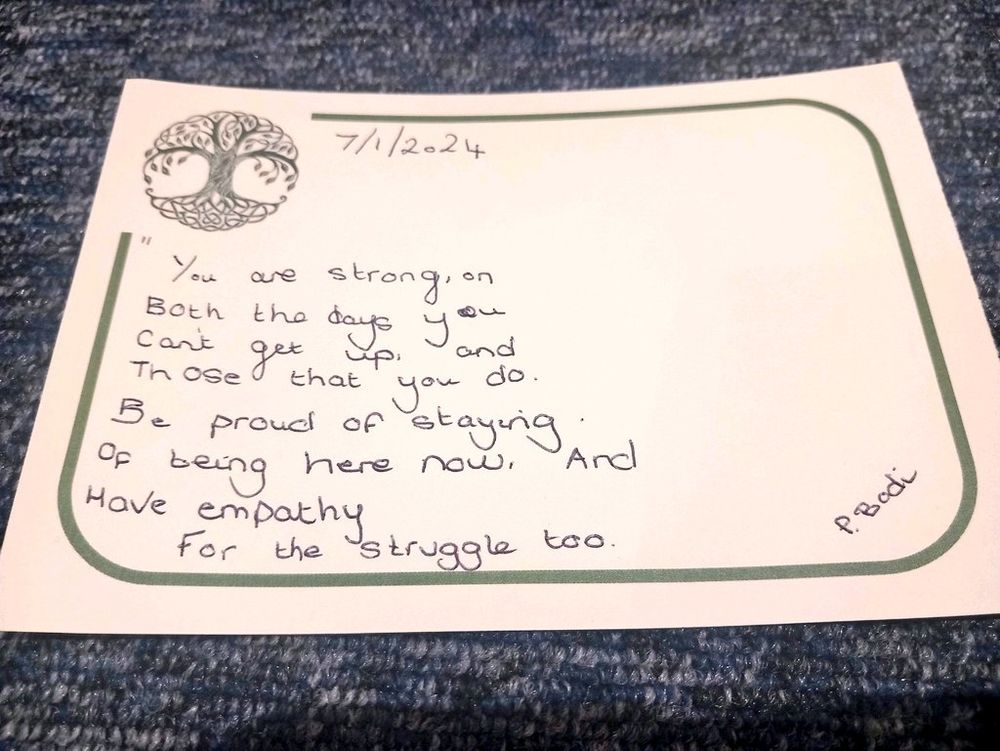 7/1/2024
"
You are strong, on
Both the days you
Can't get up, and
Those that you do.
Be proud of staying.
Of being here now. And
Have empathy
For the struggle too.
P. Bodi